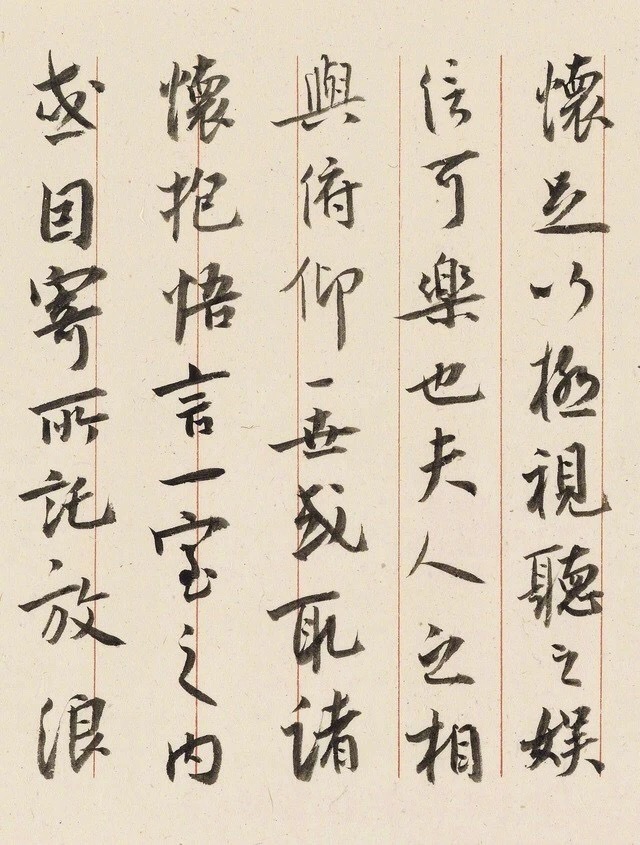 懷足以極視聽之娛
信可樂也夫人之相
與俯仰一世或取諸
懷抱悟言一室之內
或因寄所託放浪